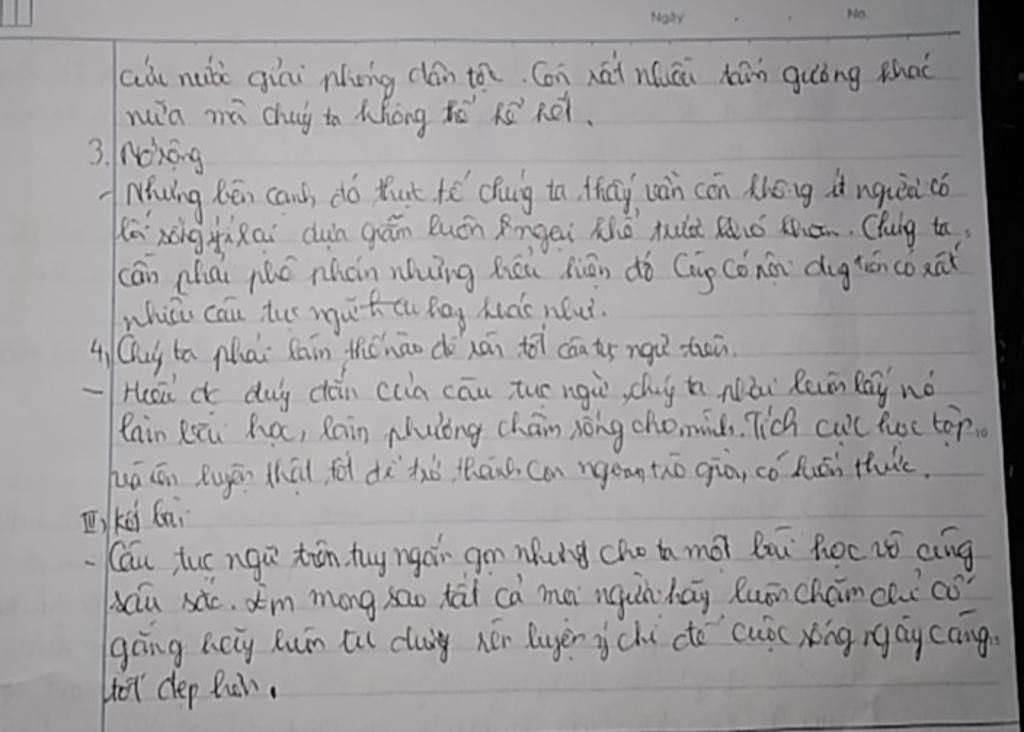 Ngày . . No.
cứu nước giải phóng dân tộc. Còn rất nhiều tấm gương khác
nữa mà chúg ta không thể kể hết.
3. Mở rộng
- Nhưng bên cạnh đó thực tế chúg ta thấy vẫn còn không ít người có
lối sống ỷ lại dựa giẫm luôn ngại khổ trước khó khăn. Chúg ta
cần phải phê phán những biểu hiện đó Cũg có nội dug trên có rất
nhiều câu tục ngữ hay khác như.
4, Chúg ta phải làm thế nào để tốt câu tục ngữ trên.
- Hiểu đc đúg đắn của câu tục ngữ, chúg ta phải luôn lấy nó
làm bài học, làm phương châm sống cho mình. Tích cực học tập
và rèn luyện thật tốt để trở thành con ngoan, trò giỏi, có kiến thức.
III, Kết bài
- Câu tục ngữ trên tuy ngắn gọn nhưng cho ta một bài học vô cùng
sâu sắc. Em mong sao tất cả mọi người hãy luôn chăm chỉ cố
gắng hãy luôn tư duy rèn luyện ý chí để cuộc sống ngày càng
tốt đẹp hơn.